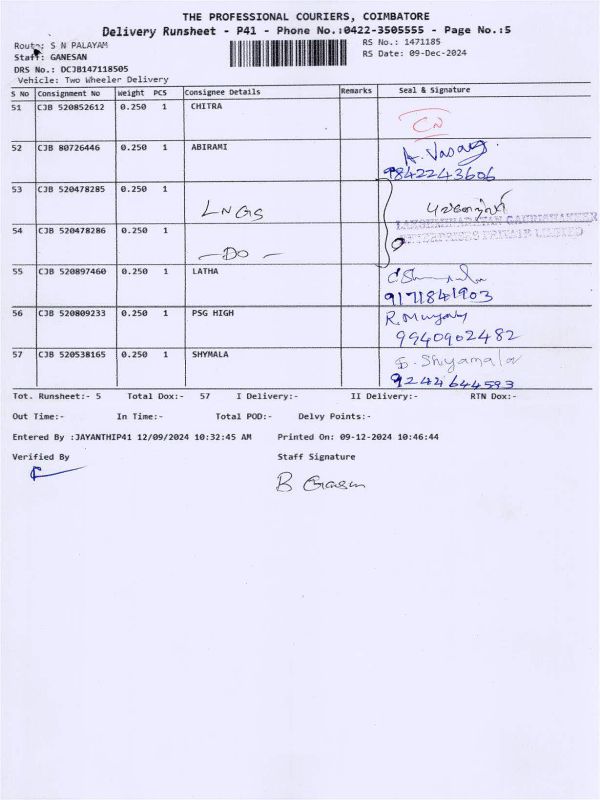 THE PROFESSIONAL COURIERS, COIMBATORE
Delivery Runsheet - P41 - Phone No.:0422-3505555 - Page No.:5
Route: S N PALAYAM
RS No.: 1471185
Staff: GANESAN
RS Date: 09-Dec-2024
DRS No.: DCJB147118505
Vehicle: Two Wheeler Delivery
S No Consignment No Weight PCS Consignee Details Remarks Seal & Signature
51 CJB 520852612 0.250 1 CHITRA
52 CJB 80726446 0.250 1 ABIRAMI
9842243606
53 CJB 520478285 0.250 1
LNGS
54 CJB 520478286 0.250 1
ENTERPRISES PRIVATE LIMITED
—DO—
55 CJB 520897460 0.250 1 LATHA
9171841903
56 CJB 520809233 0.250 1 PSG HIGH
9940902482
57 CJB 520538165 0.250 1 SHYMALA S. Shyamala
9244644593
Tot. Runsheet:- 5 Total Dox:- 57 I Delivery:- II Delivery:- RTN Dox:-
Out Time:- In Time:- Total POD:- Delvy Points:-
Entered By :JAYANTHIP41 12/09/2024 10:32:45 AM Printed On: 09-12-2024 10:46:44
Verified By Staff Signature